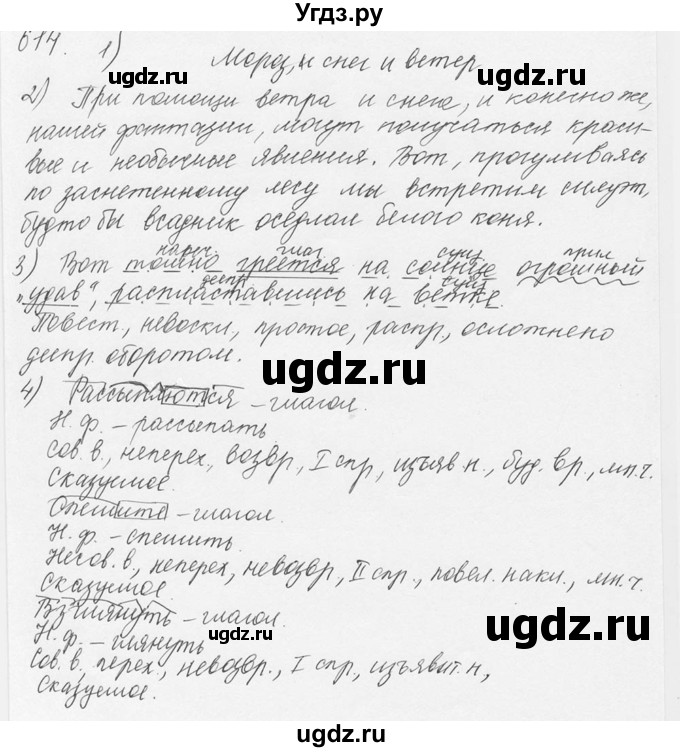 Угдз.ру
614. 1) Мороз, и снег и ветер.
2) При помощи ветра и снега, и конечно же,
нашей фантазии, могут получаться краси-
вые и необычные явления. Вот, прогуливаясь
по заснеженному лесу мы встретим силуэт,
будто бы всадник оседлал белого коня.
нареч. глаг сущ прил
3) Вот томно греется на солнце огромный
деепр сущ
"удав", распластавшись на ветке.
Повест., невоскл., простое, распр., осложнено
деепр. оборотом.
ugdz.ru ugdz.ru
4) Рассыплются – глагол.
Н. ф. – рассыпать
Сов. в., неперех., возвр., I спр., изъяв. н., буд. вр., мн. ч.
Сказуемое.
Спешите – глагол.
ugdz.ru
Н. ф. – спешить
Несов. в., неперех., невозвр., II спр., повел. накл., мн. ч.
Сказуемое.
Взглянуть – глагол.
ugdz.ru ugdz.ru
Н. ф. – глянуть
Сов. в. перех., невозвр., I спр., изъявит. н.,
Сказуемое.
ugdz.ru